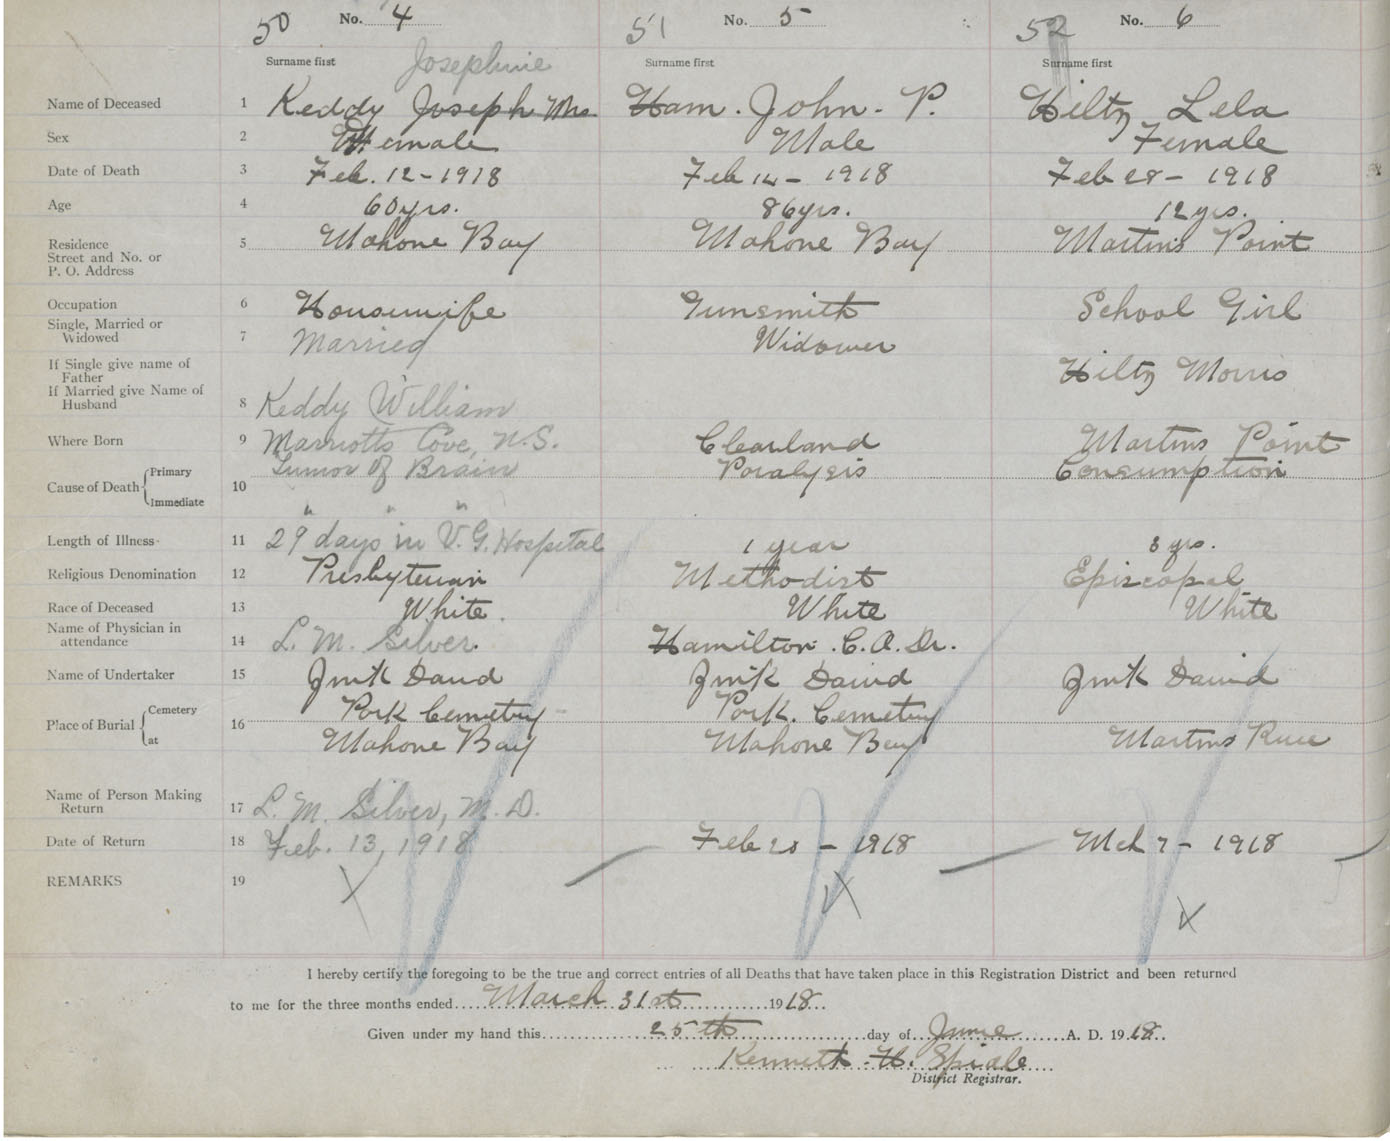 50 No. 4 51 No. 5 52 No. 6
Surname first Josephine Surname first Surname first
Name of Deceased 1 Keddy Joseph Mrs. Ham. John. P. Hiltz Lela
Sex 2 Female Male Female
Date of Death 3 Feb. 12-1918 Feb 14- 1918 Feb 28- 1918
Age 4 60 yrs. 86 yrs. 12 yrs.
Residence 5 Mahone Bay Mahone Bay Martins Point
Street and No. or
P. O. Address
Occupation 6 Housewife Gunsmith School Girl
Single, Married or
Widowed 7 Married Widower
If Single give name of
Father Hiltz Morris
If Married give Name of
Husband 8 Keddy William
Where Born 9 Marriotts Cove, N.S. Clearland Martins Point
Primary Tumor of Brain Paralysis Consumption
Cause of Death 10
Immediate " " "
Length of Illness 11 29 days in V.G. Hospital 1 year 3 yrs.
Religious Denomination 12 Presbyterian Methodist Episcopal
Race of Deceased 13 White. White White
Name of Physician in
attendance 14 L. M. Silver. Hamilton. C. A. Dr.
Name of Undertaker 15 Zwik David Zwik David Zwik David
Cemetery Park Cemetry Park. Cemetry
Place of Burial 16
at Mahone Bay Mahone Bay Martins River
Name of Person Making
Return 17 L. M. Silver, M.D.
Date of Return 18 Feb. 13, 1918 Feb 20 - 1918 Mch 7 - 1918
REMARKS 19 X X X
I hereby certify the foregoing to be the true and correct entries of all Deaths that have taken place in this Registration District and been returned
to me for the three months ended March 31st 1918
Given under my hand this 25th day of June A. D. 1918.
Kenneth H.
District Registrar.